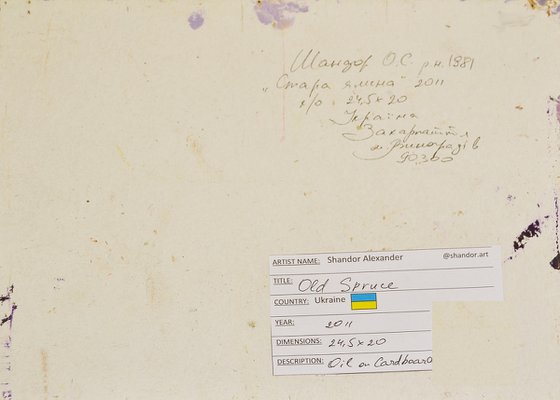 Шандор О.С. р.н. 1981
„Стара ялина" 2011
к/о 24,5х20
Україна
Закарпаття
м. Виноградів
90300
ARTIST NAME: Shandor Alexander @shandor.art
TITLE: Old Spruce
COUNTRY: Ukraine
YEAR: 2011
DIMENSIONS: 24,5x20
DESCRIPTION: Oil on Cardboard